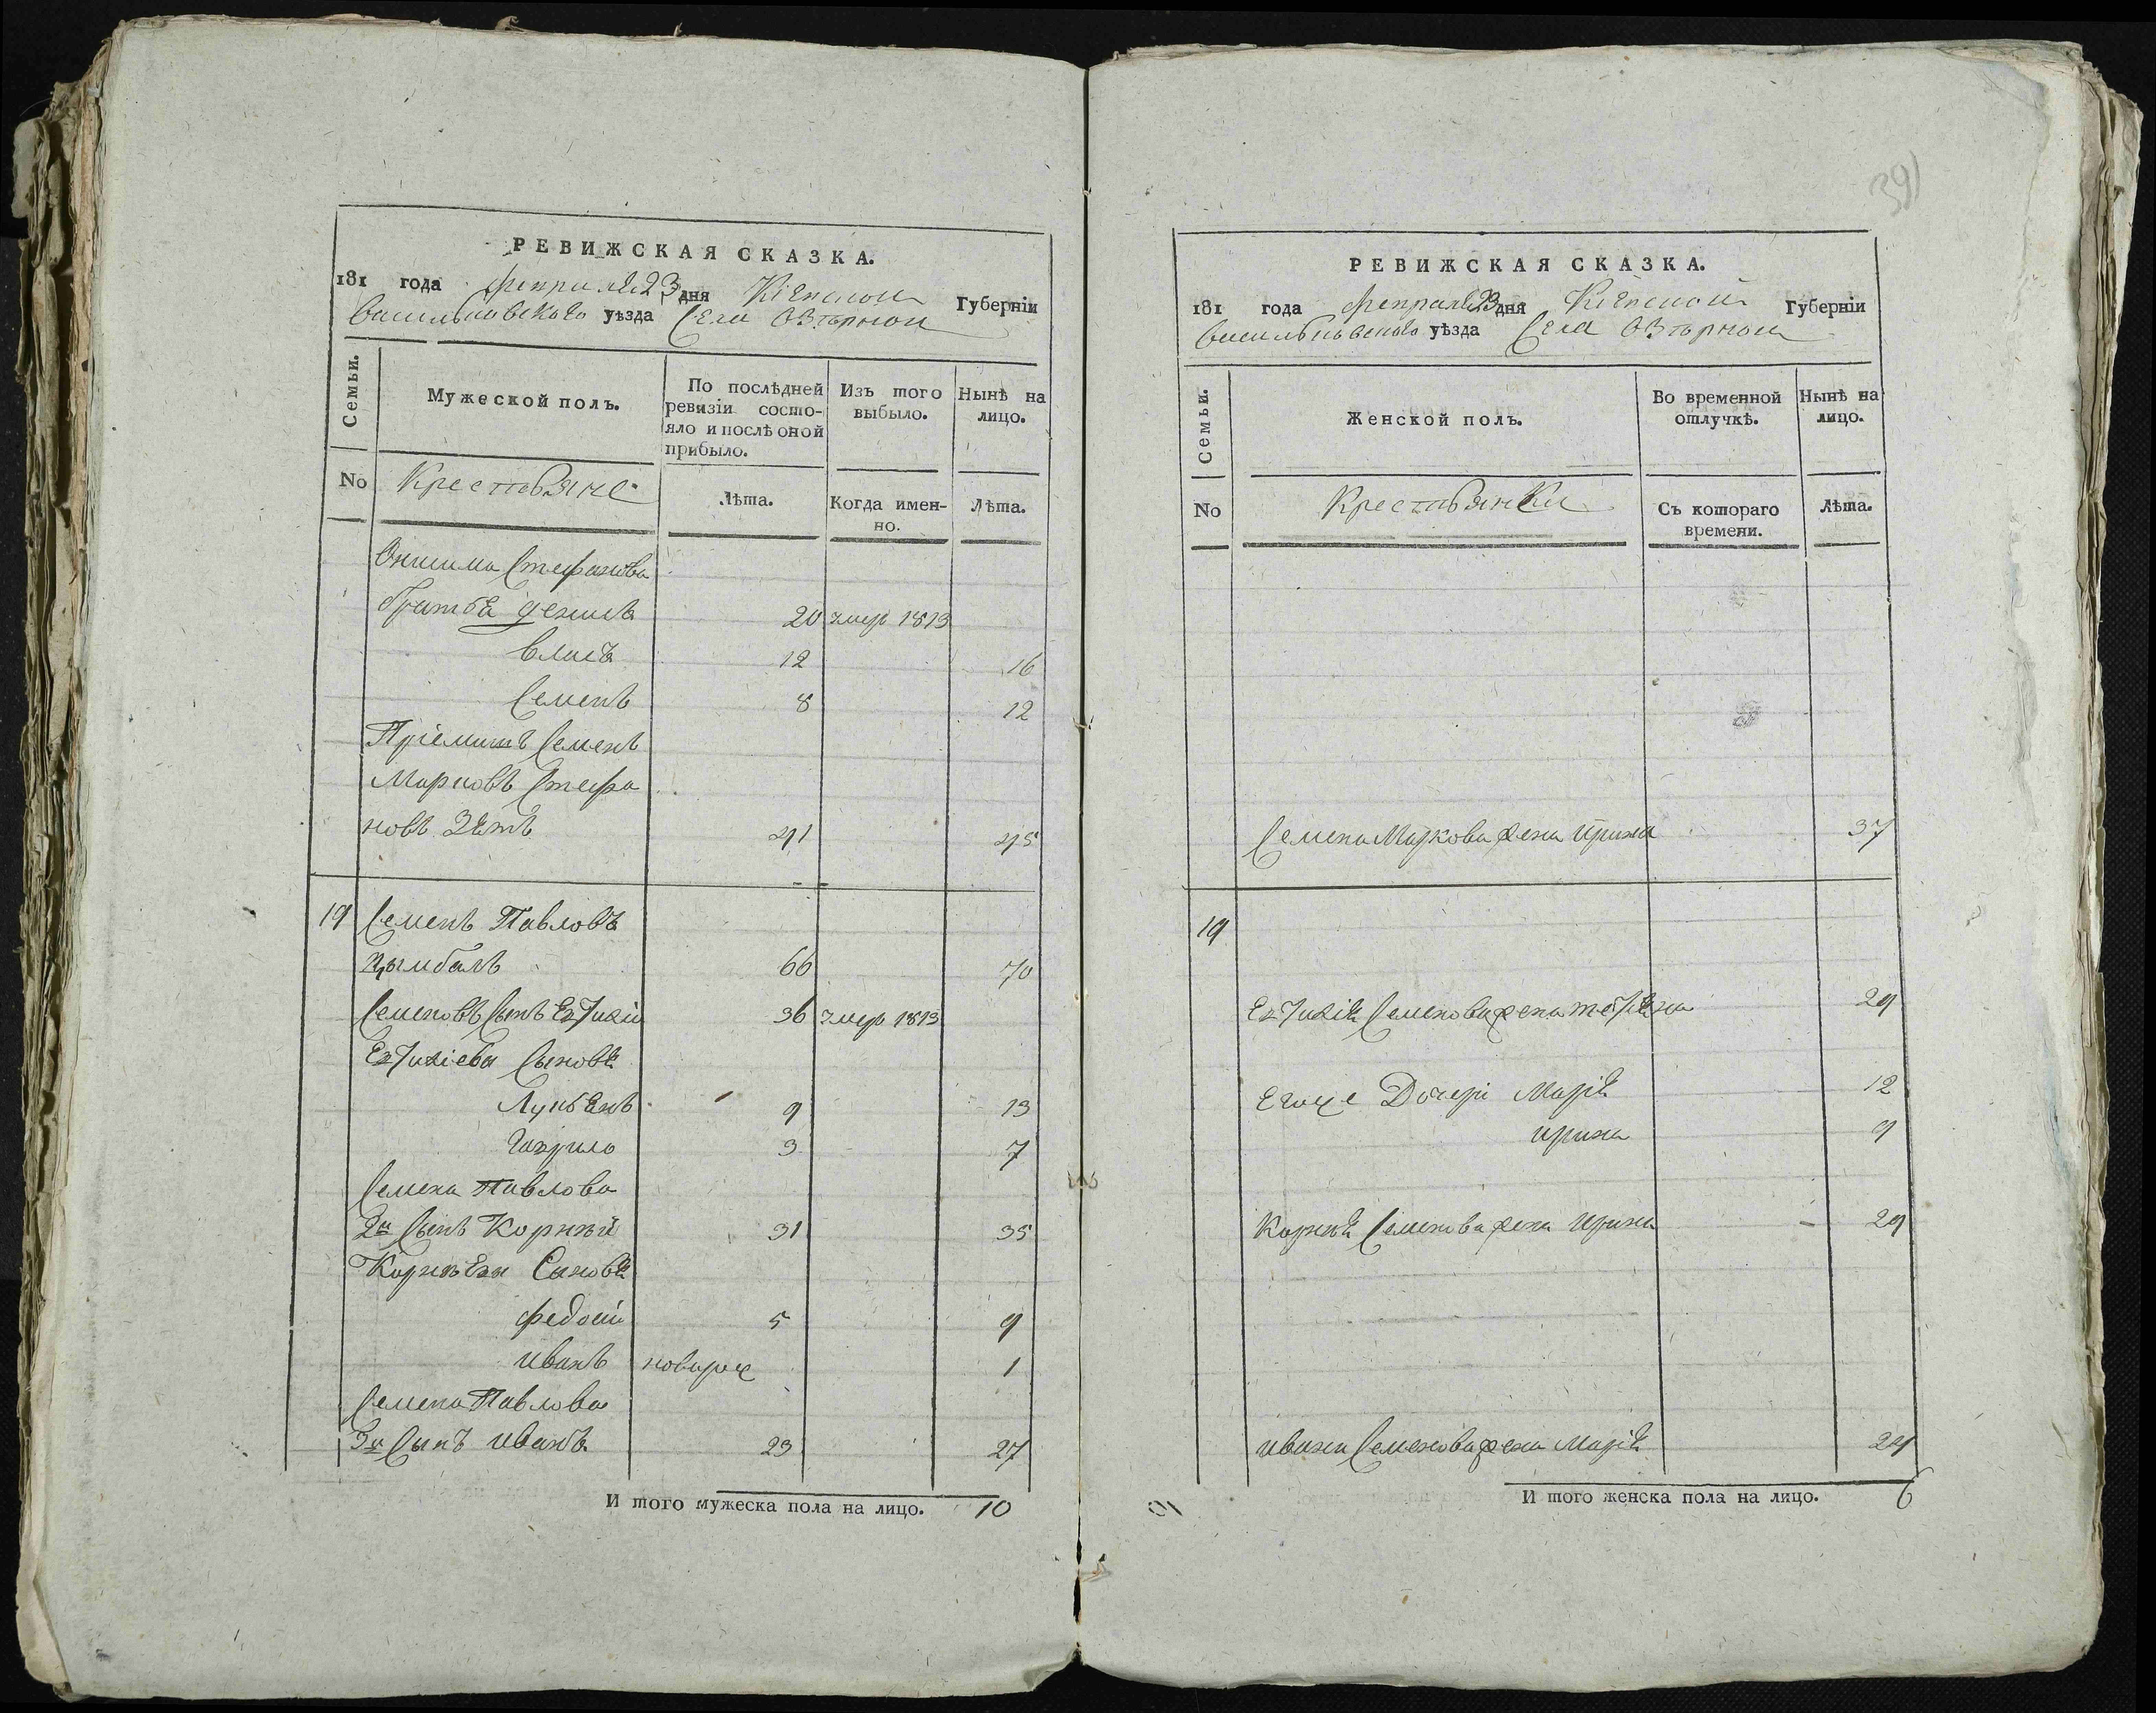 РЕВИЖСКАЯ СКАЗКА.
181 года февраля 23 дня Кіевской Губерніи
Васильковскаго уѣзда Села Озѣрной
Семьи.
Мужеской полъ.
По послѣдней ревизіи состояло и послѣ оной прибыло.
Изъ того выбыло.
Нынѣ на лицо.
No
Крестьяне
Лѣта.
Когда именно.
Лѣта.
Онисима Стефанова
братья 20 умер 1813
Власъ 12 16
Семенъ 8 12
Пріемышъ Семенъ
Марковъ Стефа
новъ Зять 41 45
19 Семенъ Павловъ
Цымбалъ 66 70
Семеновъ Сынъ 36 умер 1813
Сыновья
Лукьянъ 9 13
Гаврило 3 7
Семена Павлова
2й Сынъ Корнѣй 31 35
Корнѣевы Сыновья
Федосій 5 9
Иванъ новорож 1
Семена Павлова
3й Сынъ Иванъ 23 27
И того мужеска пола на лицо. 10
391
РЕВИЖСКАЯ СКАЗКА.
181 года февраля 23 дня Кіевской Губерніи
Васильковскаго уѣзда Села Озѣрной
Семьи.
Женской полъ.
Во временной отлучкѣ.
Нынѣ на лицо.
No
Крестьянки
Съ котораго времени.
Лѣта.
Семена Маркова жена Ирина 37
19
Семенова жена 29
Егоже Дочери Марія 12
Ирина 9
Корнѣя Семенова жена Ирина 29
Ивана Семенова жена Марія 24
И того женска пола на лицо. 6